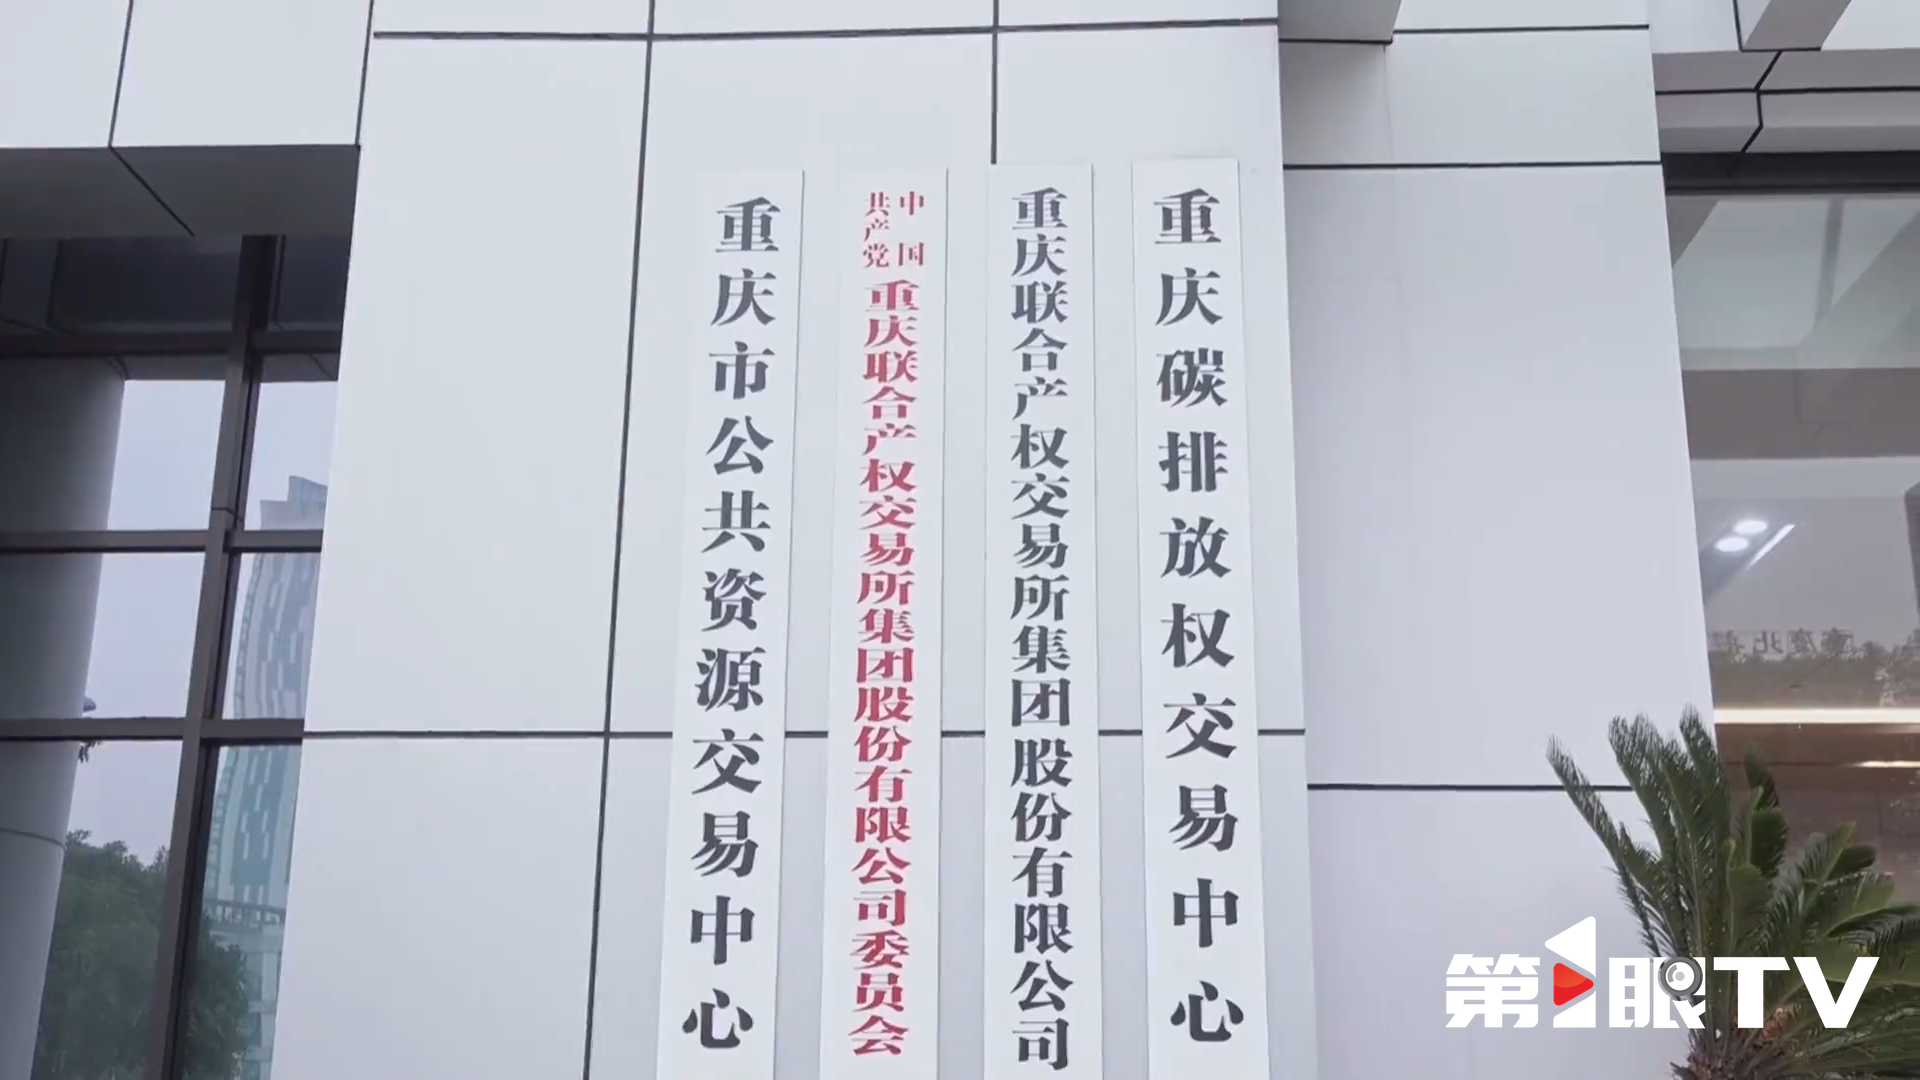 重庆市公共资源交易中心
中国共产党重庆联合产权交易所集团股份有限公司委员会
重庆联合产权交易所集团股份有限公司
重庆碳排放权交易中心
第1眼TV